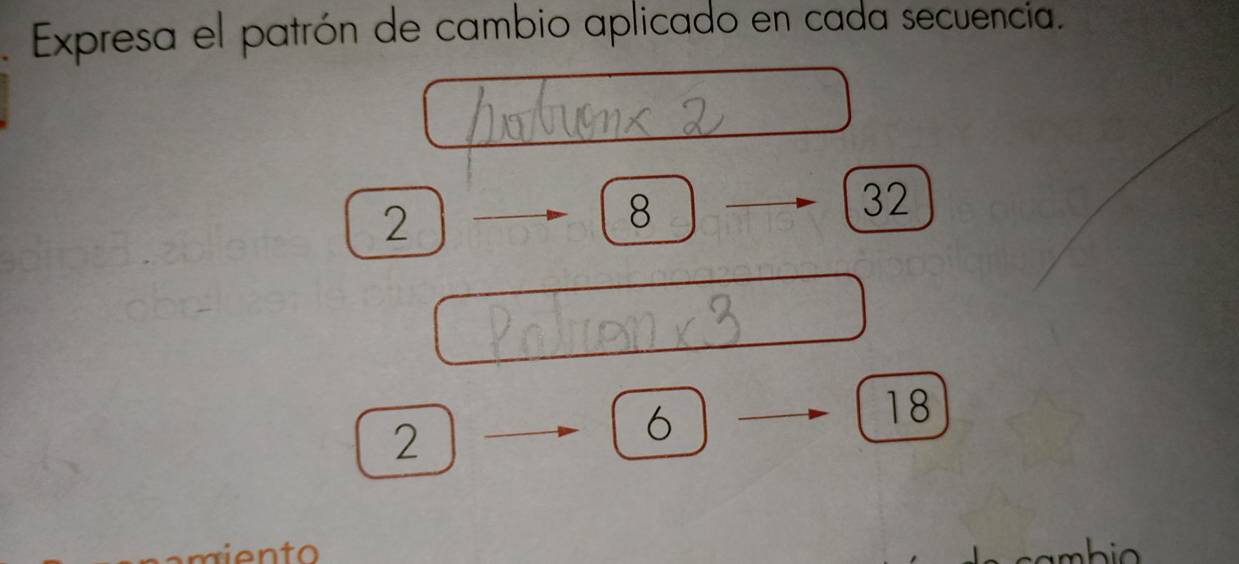 Expresa el patrón de cambio aplicado en cada secuencia.
patron x 2
2 → 8 → 32
Patron x 3
2 → 6 → 18
de cambio